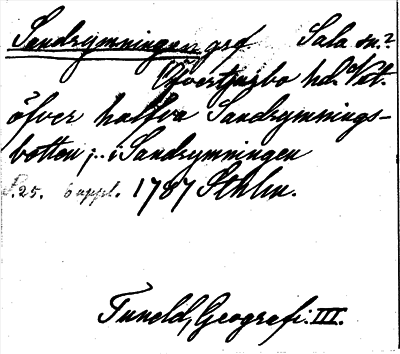 Sandrymningen grf Sala sn.?
Öfvertjurbo hd. Vst.
öfver halfva Sandrymnings-
botten; - i Sandrymningen
S.25. 6 uppl. 1787 Sthlm.
Tuneld, Geografi. III.